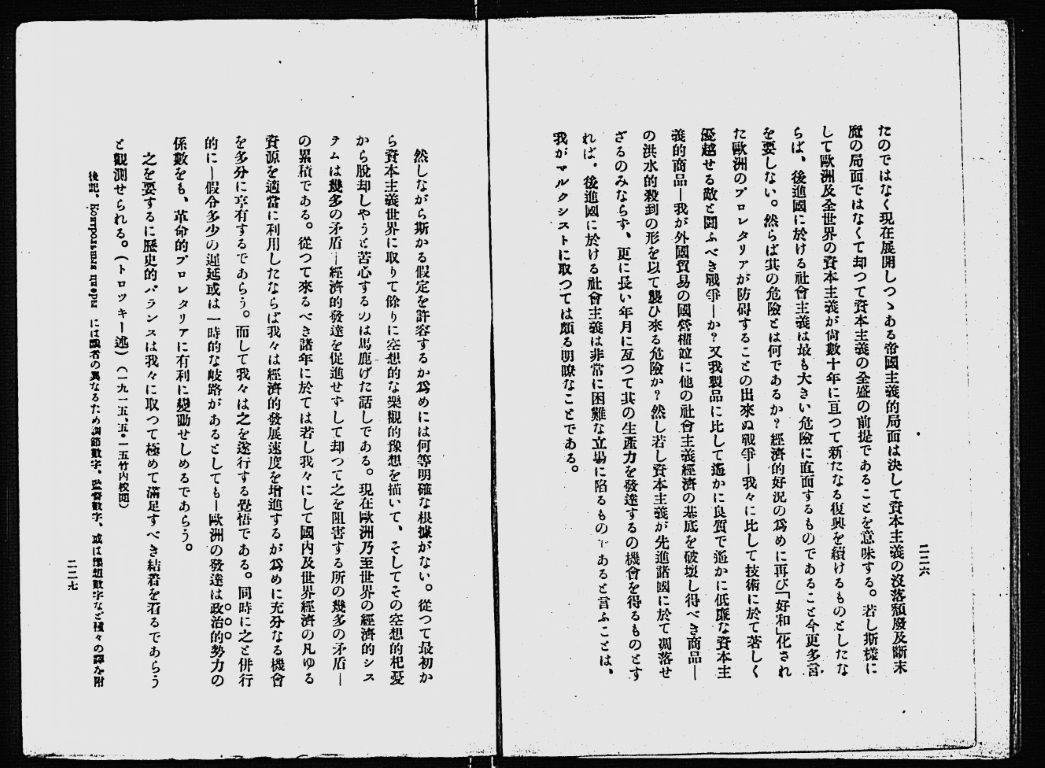 二二六
たのではなく現在展開しつゝある帝國主義的局面は決して資本主義の沒落頽廢及斷末
魔の局面ではなくて却つて資本主義の全盛の前提であることを意味する。若し斯樣に
して歐洲及全世界の資本主義が尙數十年に亘つて新たなる復興を續けるものとしたな
らば、後進國に於ける社會主義は最も大きい危險に直面するものであること今更多言
を要しない。然らば其の危險とは何であるか?經濟的好況の爲めに再び「好和」化され
た歐洲のプロレタリアが防碍することの出來ぬ戰爭―我々に比して技術に於て著しく
優越せる敵と鬪ふべき戰爭―か?又我製品に比して遙かに良質で遙かに低廉な資本主
義的商品―我が外國貿易の國營權竝に他の社會主義經濟の基底を破壞し得べき商品―
の洪水的殺到の形を以て襲ひ來る危險か?然し若し資本主義が先進諸國に於て凋落せ
ざるのみならず、更に長い年月に亙つて其の生產力を發達するの機會を得るものとす
れば、後進國に於ける社會主義は非常に困難な立場に陷るものであると言ふことは、
我がマルクシストに取つては頗る明瞭なことである。
然しながら斯かる假定を許容するが爲めには何等明確な根據がない。從つて最初か
ら資本主義世界に取りて餘りに空想的な樂觀的像想を描いて、そしてその空想的杞憂
から脫却しやうと苦心するのは馬鹿げた話しである。現在歐洲乃至世界の經濟的シス
テムは幾多の矛盾―經濟的發達を促進せずして却つて之を阻害する所の幾多の矛盾―
の累積である。從つて來るべき諸年に於ては若し我々にして國內及世界經濟の凡ゆる
資源を適當に利用したならば我々は經濟的發展速度を增進するが爲めに充分なる機會
を多分に享有するであらう。而して我々は之を遂行する覺悟である。同時に之と併行
的に―假令多少の遲延或は一時的な岐路があるとしても―歐洲の發達は政治的勢力の
係數をも、革命的プロレタリアに有利に變動せしめるであらう。
之を要するに歷史的バランスは我々に取つて極めて滿足すべき結着を着るであらう
と觀測せられる。(トロツキー述)(一九一五、五・一五竹內校閱)
後記、Контрольные цифры には譯者の異なるため調節數字、監督數字、或は豫想數字など種々の譯を附
二二七